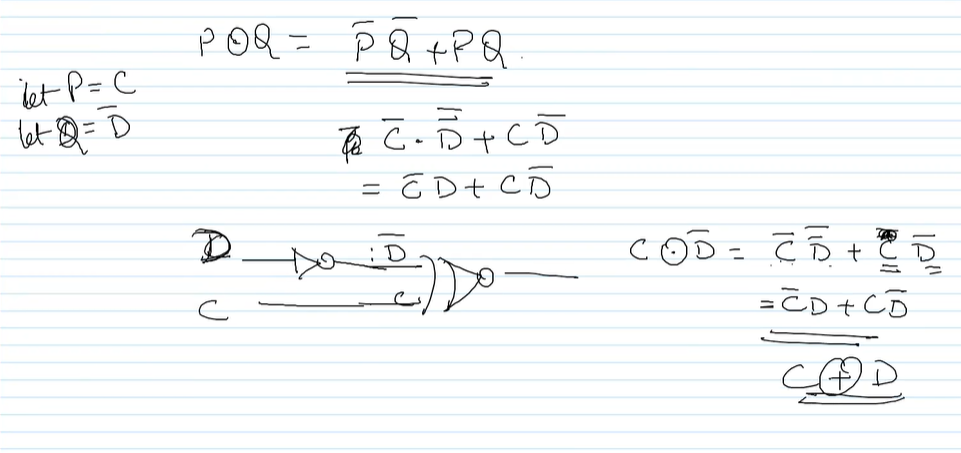 P ⊙ Q = P̅ Q̅ + PQ.
let P = C
let Q = D̅
C̅ . D̿ + C D̅
= C̅ D + C D̅
D
: D̅
C
C
C ⊙ D̅ = C̅ D̿ + C D̅
= C̅ D + C D̅
C ⊕ D